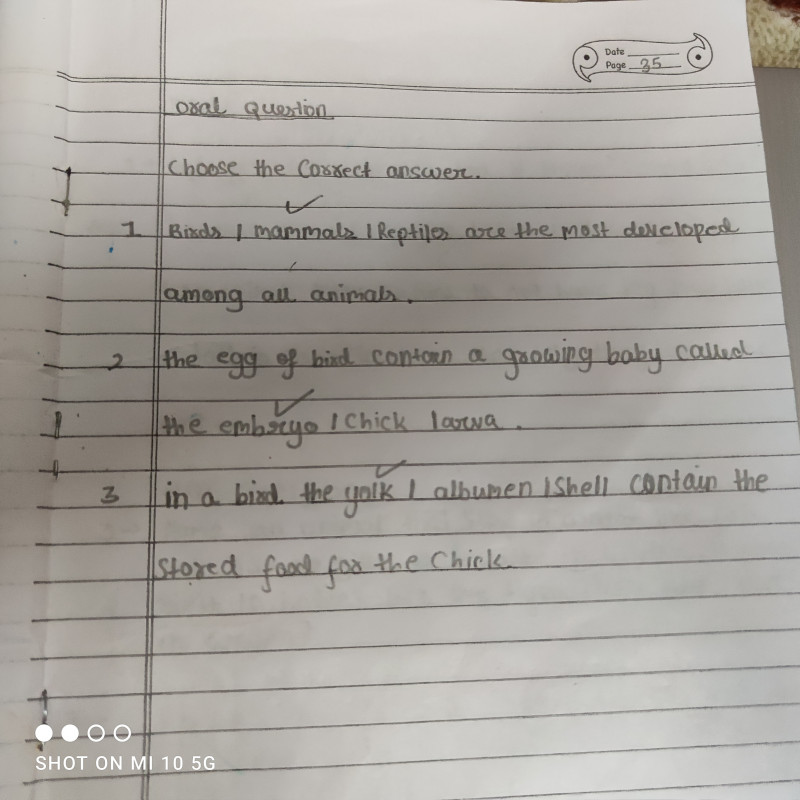 Date
Page 35
oral question
Choose the Correct answer.
1 Birds / mammals / Reptiles are the most developed
among all animals.
2 the egg of bird contain a growing baby called
the embryo / Chick larva.
3 in a bird the yolk / albumen / Shell contain the
stored food for the Chick.
SHOT ON MI 10 5G